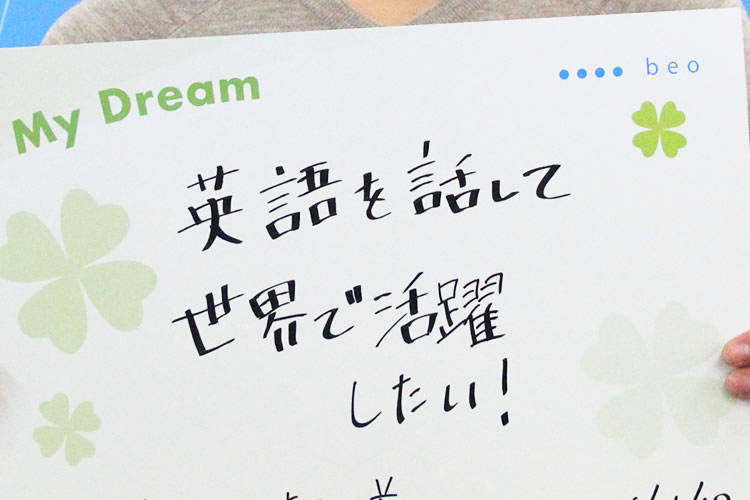 My Dream
beo
英語を話して
世界で活躍
したい!